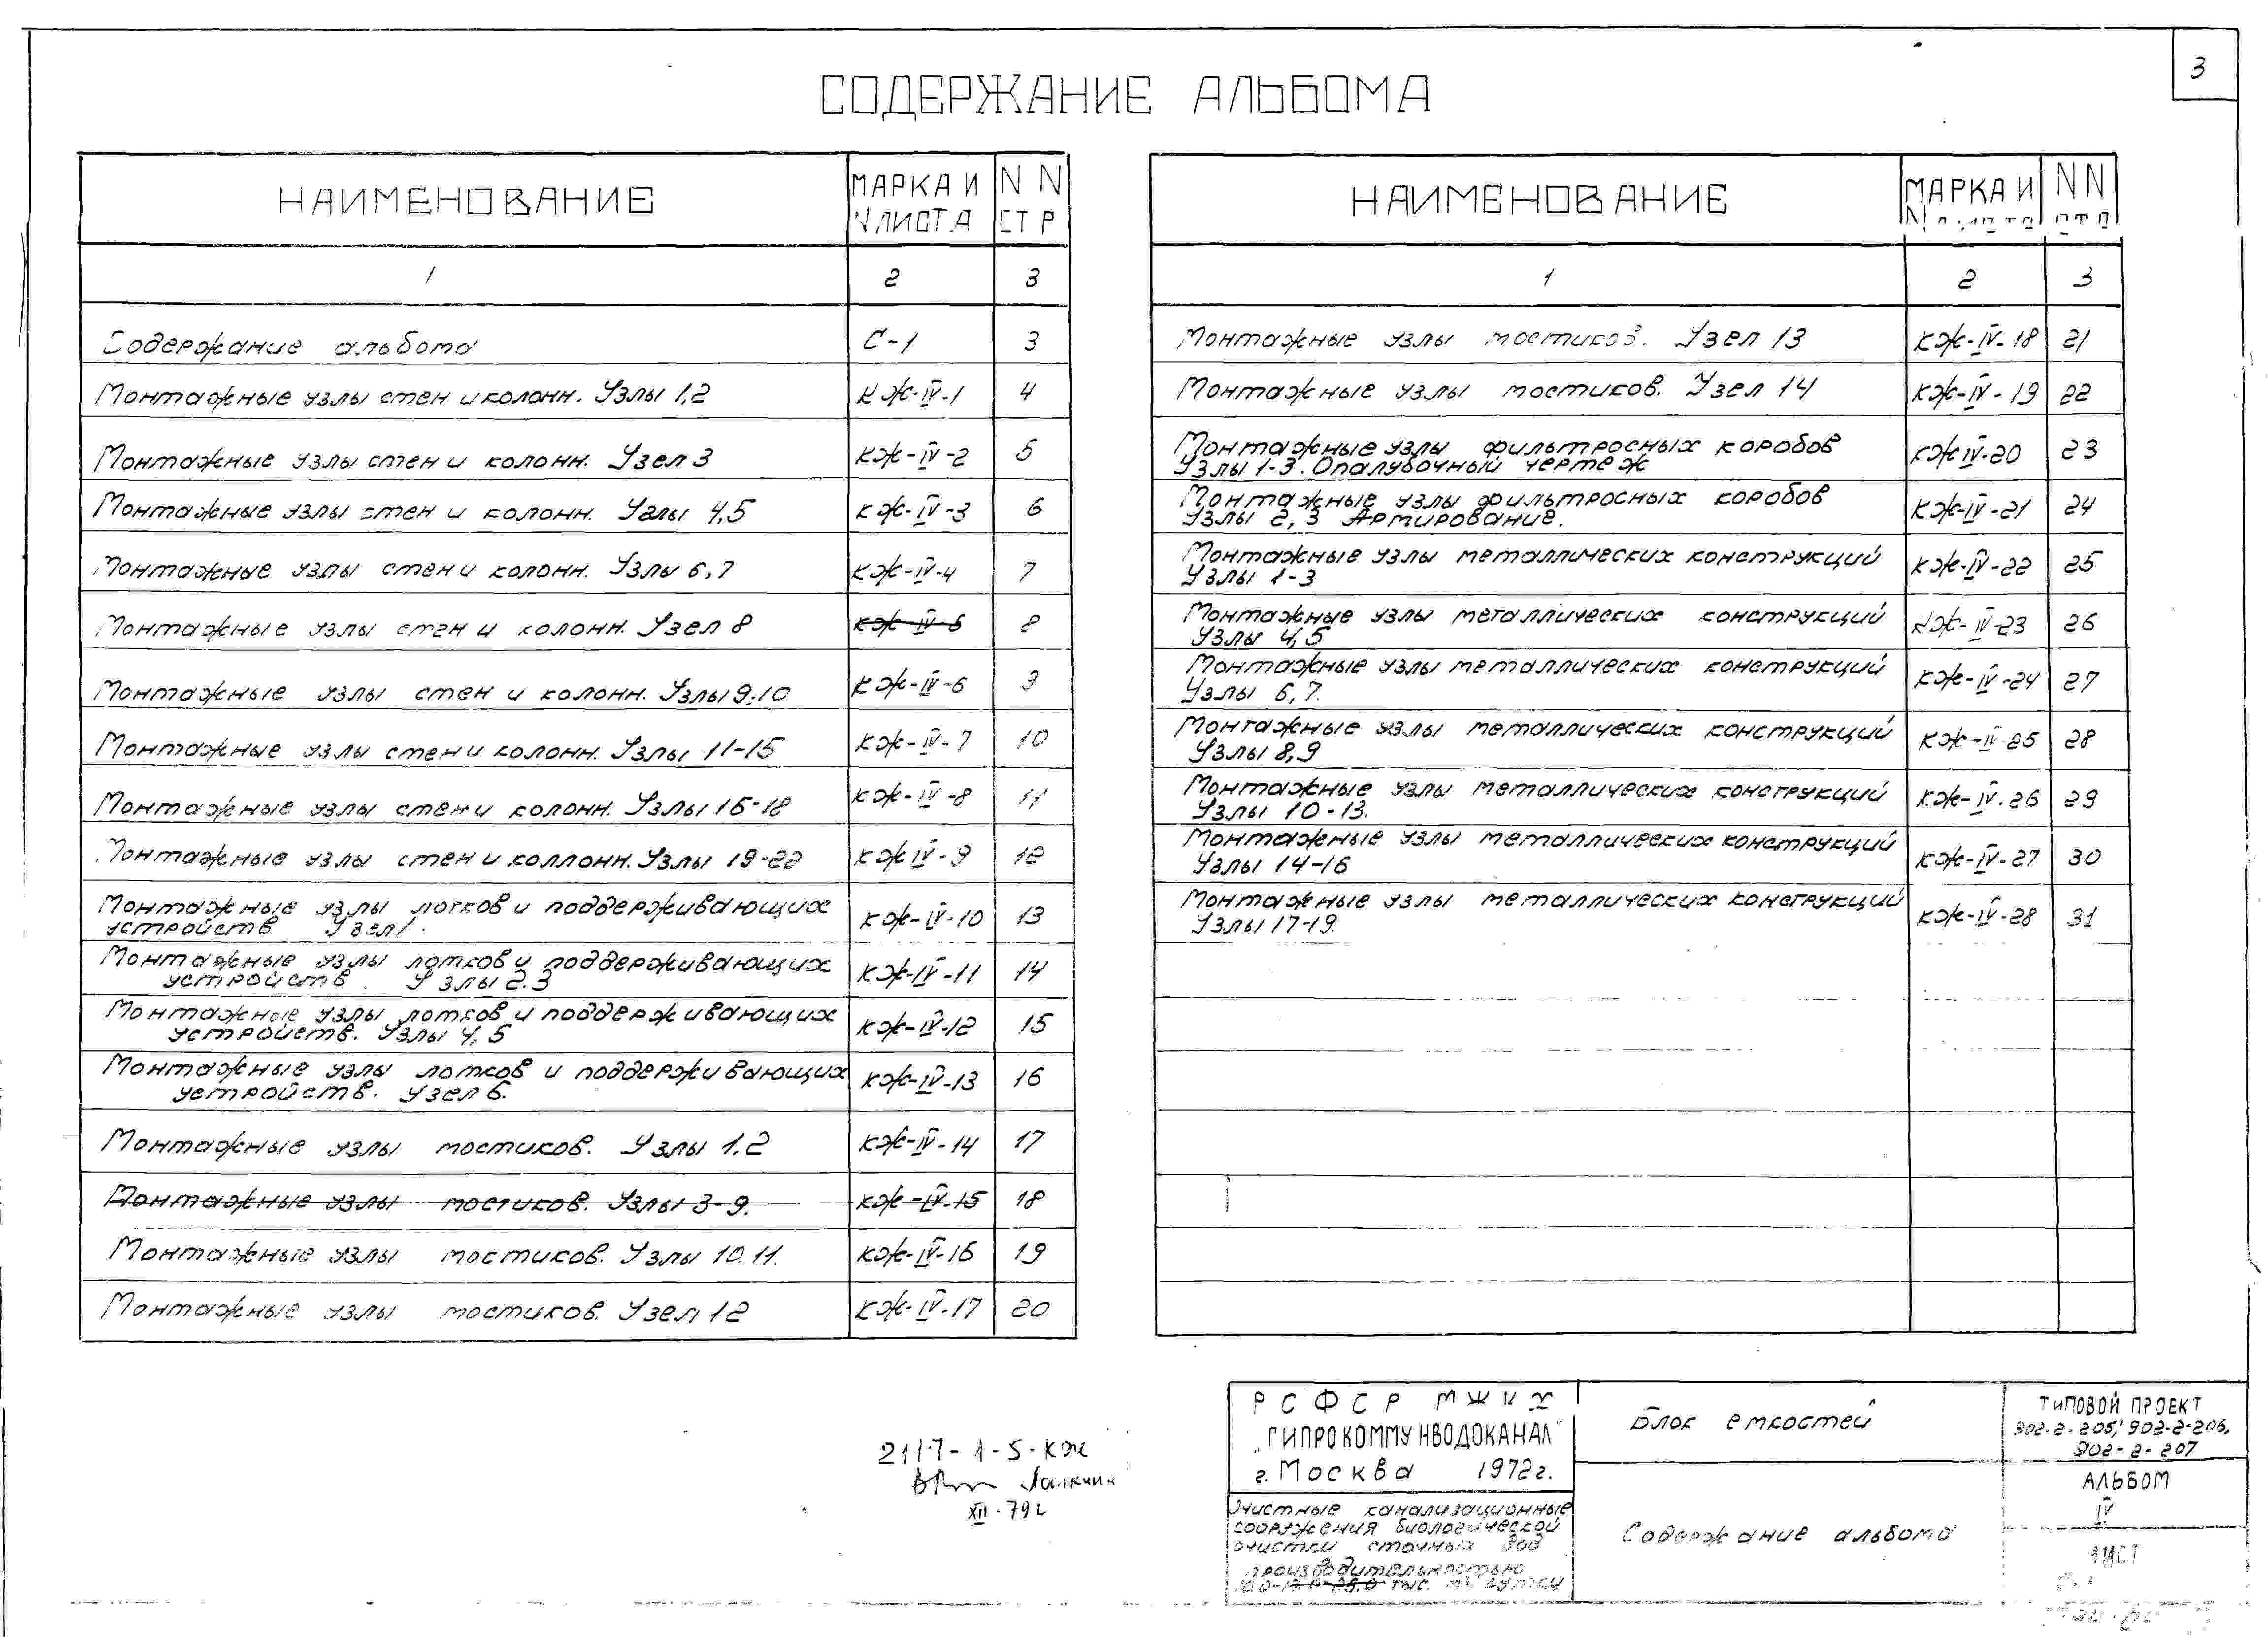 3
СОДЕРЖАНИЕ АЛЬБОМА
НАИМЕНОВАНИЕ
МАРКА И
N ЛИСТА
N N
СТР
1 2 3
Содержание альбома С-1 3
Монтажные узлы стен и колонн. Узлы 1,2 КЖ-IV-1 4
Монтажные узлы стен и колонн. Узел 3 КЖ-IV-2 5
Монтажные узлы стен и колонн. Узлы 4,5 КЖ-IV-3 6
Монтажные узлы стен и колонн. Узлы 6,7 КЖ-IV-4 7
Монтажные узлы стен и колонн. Узел 8 КЖ-IV-5 8
Монтажные узлы стен и колонн. Узлы 9,10 КЖ-IV-6 9
Монтажные узлы стен и колонн. Узлы 11-15 КЖ-IV-7 10
Монтажные узлы стен и колонн. Узлы 16-18 КЖ-IV-8 11
Монтажные узлы стен и коллонн. Узлы 19-22 КЖ IV-9 12
Монтажные узлы лотков и поддерживающих
устройств Узел 1. КЖ-IV-10 13
Монтажные узлы лотков и поддерживающих
устройств. Узлы 2.3 КЖ-IV-11 14
Монтажные узлы лотков и поддерживающих
устройств. Узлы 4,5 КЖ-IV-12 15
Монтажные узлы лотков и поддерживающих
устройств. Узел 6. КЖ-IV-13 16
Монтажные узлы мостиков. Узлы 1.2 КЖ-IV-14 17
Монтажные узлы мостиков. Узлы 3-9. КЖ-IV-15 18
Монтажные узлы мостиков. Узлы 10.11. КЖ-IV-16 19
Монтажные узлы мостиков. Узел 12 КЖ-IV-17 20
НАИМЕНОВАНИЕ
МАРКА И
N ЛИСТА
N N
СТР
1 2 3
Монтажные узлы мостиков. Узел 13 КЖ-IV-18 21
Монтажные узлы мостиков. Узел 14 КЖ-IV-19 22
Монтажные узлы фильтросных коробов
Узлы 1-3. Опалубочный чертеж КЖ IV-20 23
Монтажные узлы фильтросных коробов
Узлы 2,3 Армирование. КЖ-IV-21 24
Монтажные узлы металлических конструкций
Узлы 1-3 КЖ-IV-22 25
Монтажные узлы металлических конструкций
Узлы 4,5 КЖ-IV-23 26
Монтажные узлы металлических конструкций
Узлы 6,7. КЖ-IV-24 27
Монтажные узлы металлических конструкций
Узлы 8,9 КЖ-IV-25 28
Монтажные узлы металлических конструкций
Узлы 10-13. КЖ-IV-26 29
Монтажные узлы металлических конструкций
Узлы 14-16 КЖ-IV-27 30
Монтажные узлы металлических конструкций
Узлы 17-19. КЖ-IV-28 31
2117-1-5-КЖ
XII-79г
РСФСР МЖКХ
„ГИПРОКОММУНВОДОКАНАЛ"
г. Москва 1972г.
Очистные канализационные
сооружения биологической
очистки сточных вод
производительностью
тыс. м³ сутки
Блок емкостей
Содержание альбома
ТИПОВОЙ ПРОЕКТ
902-2-205; 902-2-206,
902-2-207
АЛЬБОМ
IV
ЛИСТ